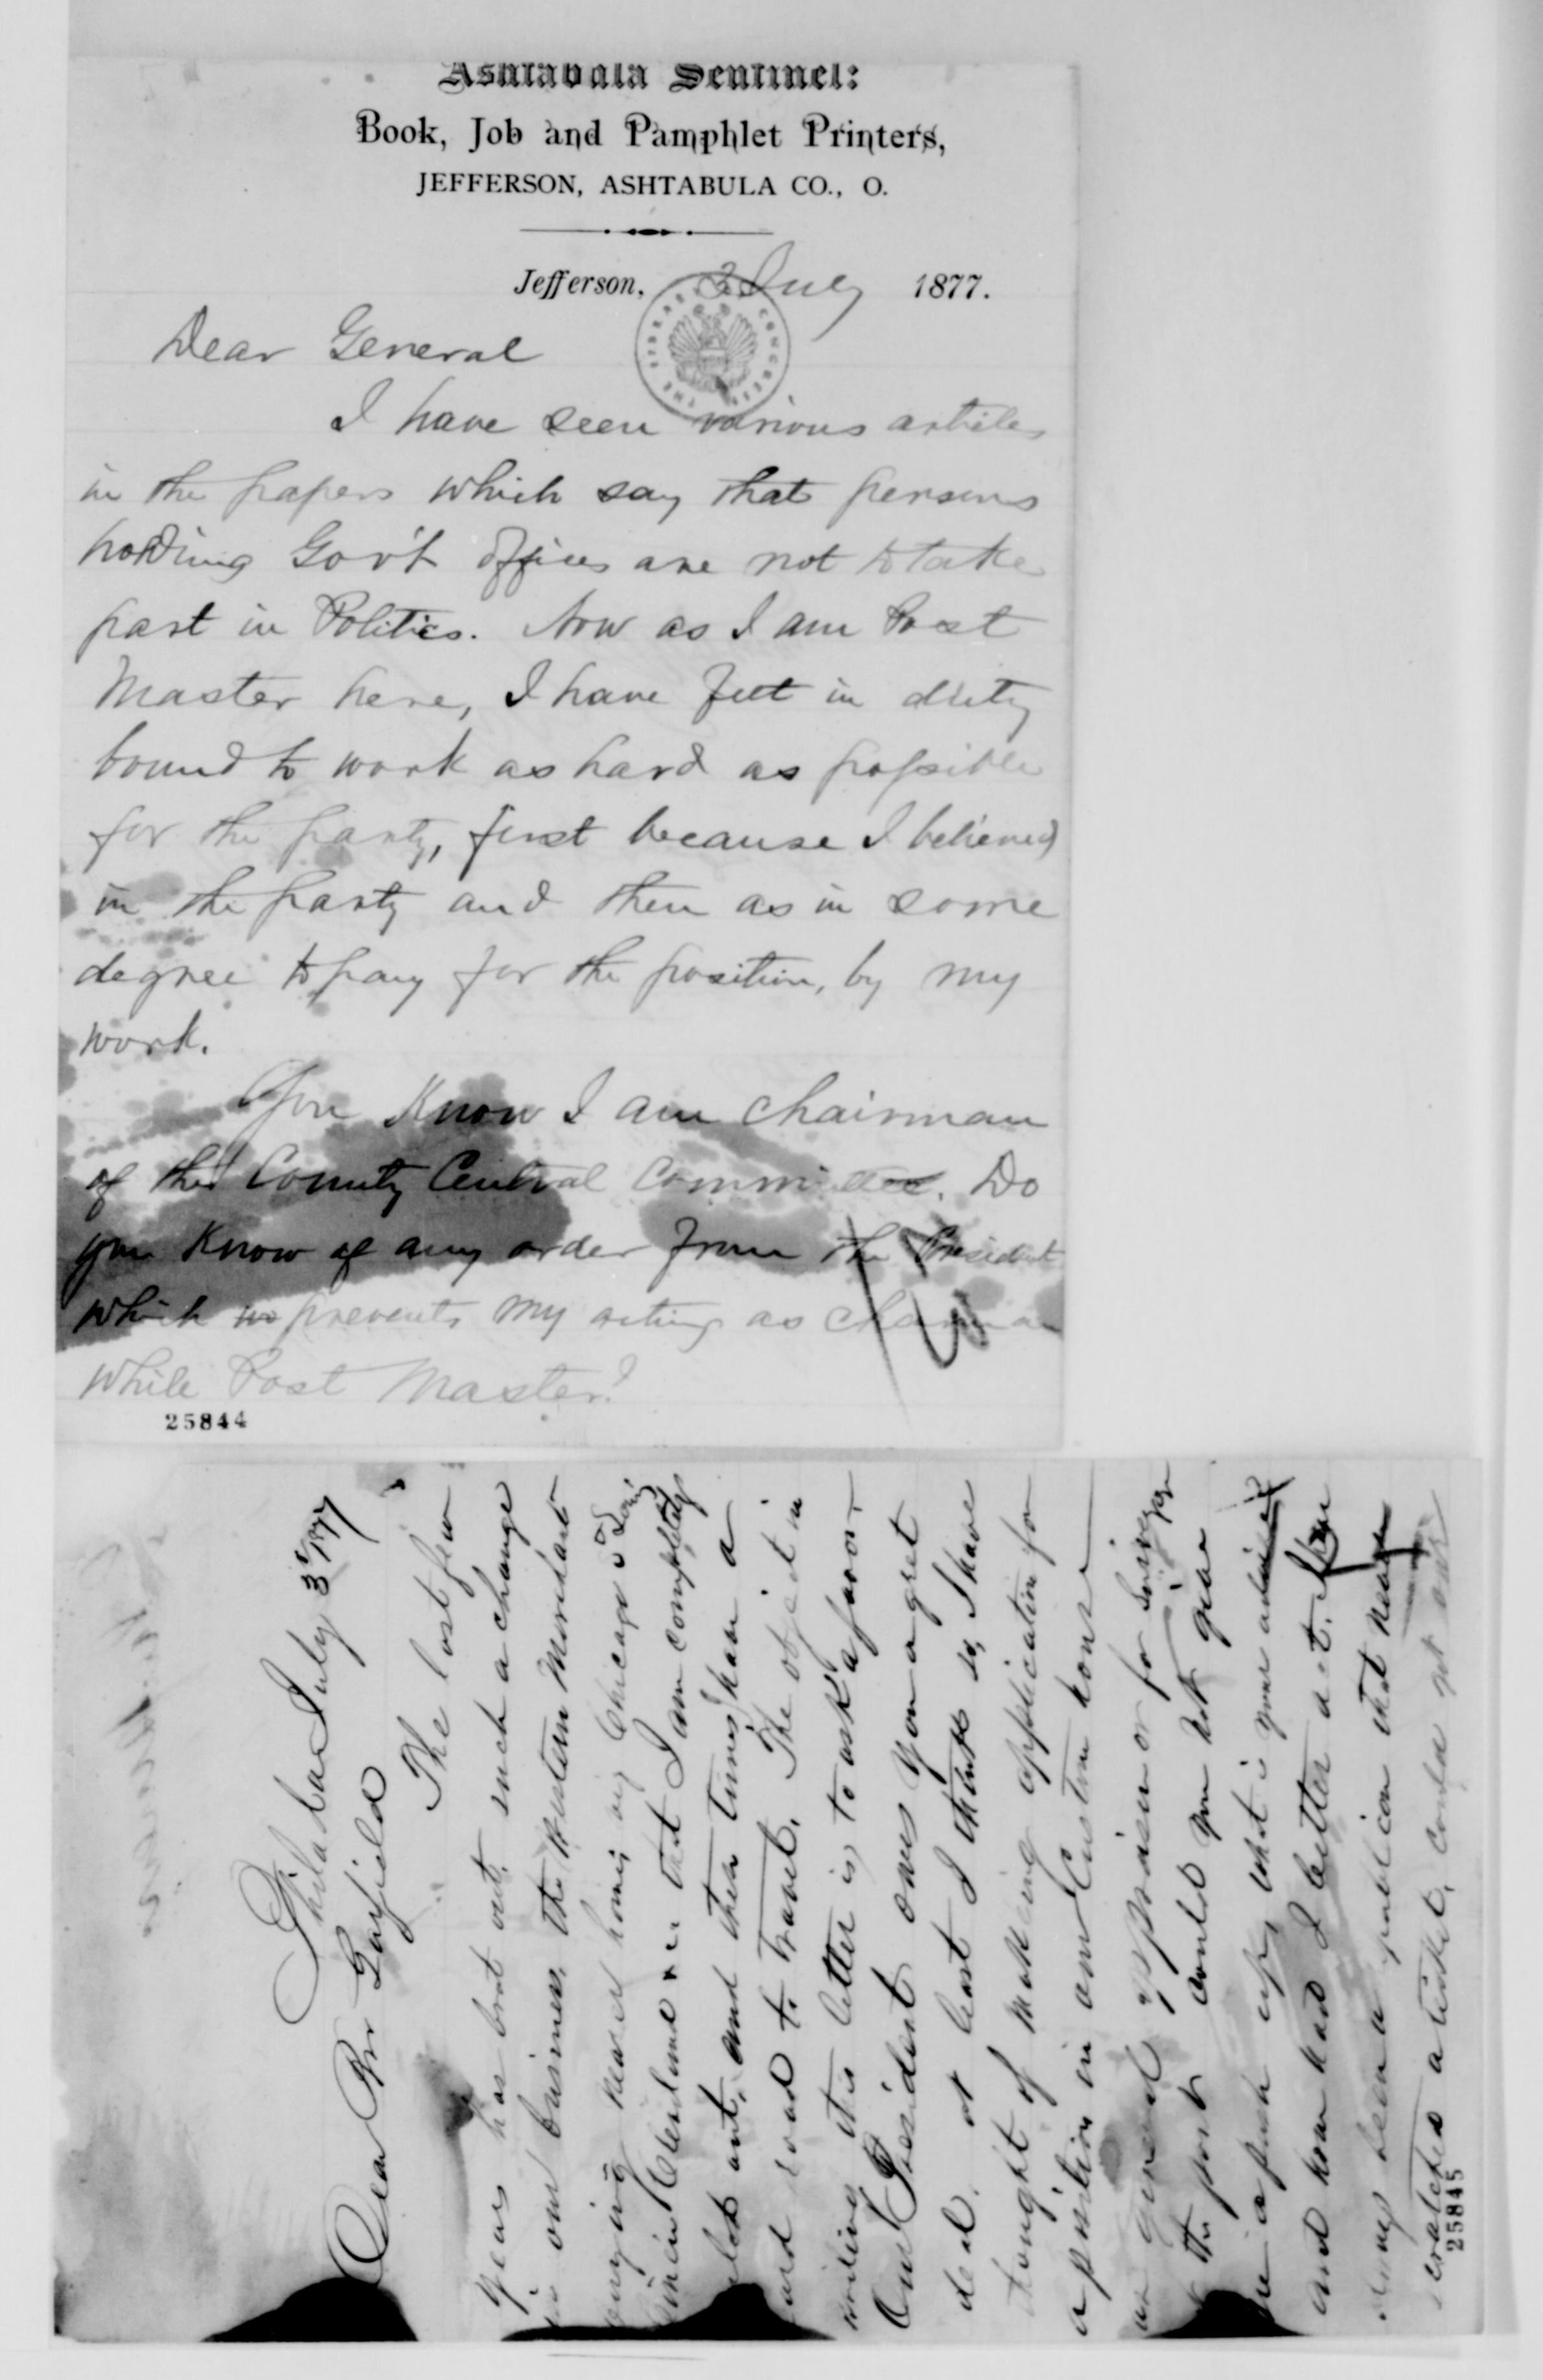 Ashtabula Sentinel:
Book, Job and Pamphlet Printers,
JEFFERSON, ASHTABULA CO., O.
Jefferson, 2 July 1877.
Dear General
I have seen various articles
in the papers which say that persons
holding Gov't offices are not to take
part in Politics. Now as I am Post
Master here, I have felt in duty
bound to work as hard as possible
for the party, first because I believed
in the party and then as in some
degree to pay for the position, by my
work.
You Know I am Chairman
of the County Central Committee. Do
you Know of any order from the President
which prevents my acting as Chairman
while Post Master?
25844
Phila July 3 1877
Dear Bro Garfield
The last few
years has brot out such a change
in our business, the Western Merchants
buying nearer home, viz Chicago
Cleveland that I am completely
out, and these times have a
hard road to travel. The object in
writing this letter is, to ask a favor
Our President owes you a great
deal. at least I think so, I have
thought of making application for
a position in our Custom house
general appraiser or for Surveyor
of the port, could you not give
me a push up, what is your advice
and how had I better act. I have
always been a republican that never
scratched a ticket, could not
25845